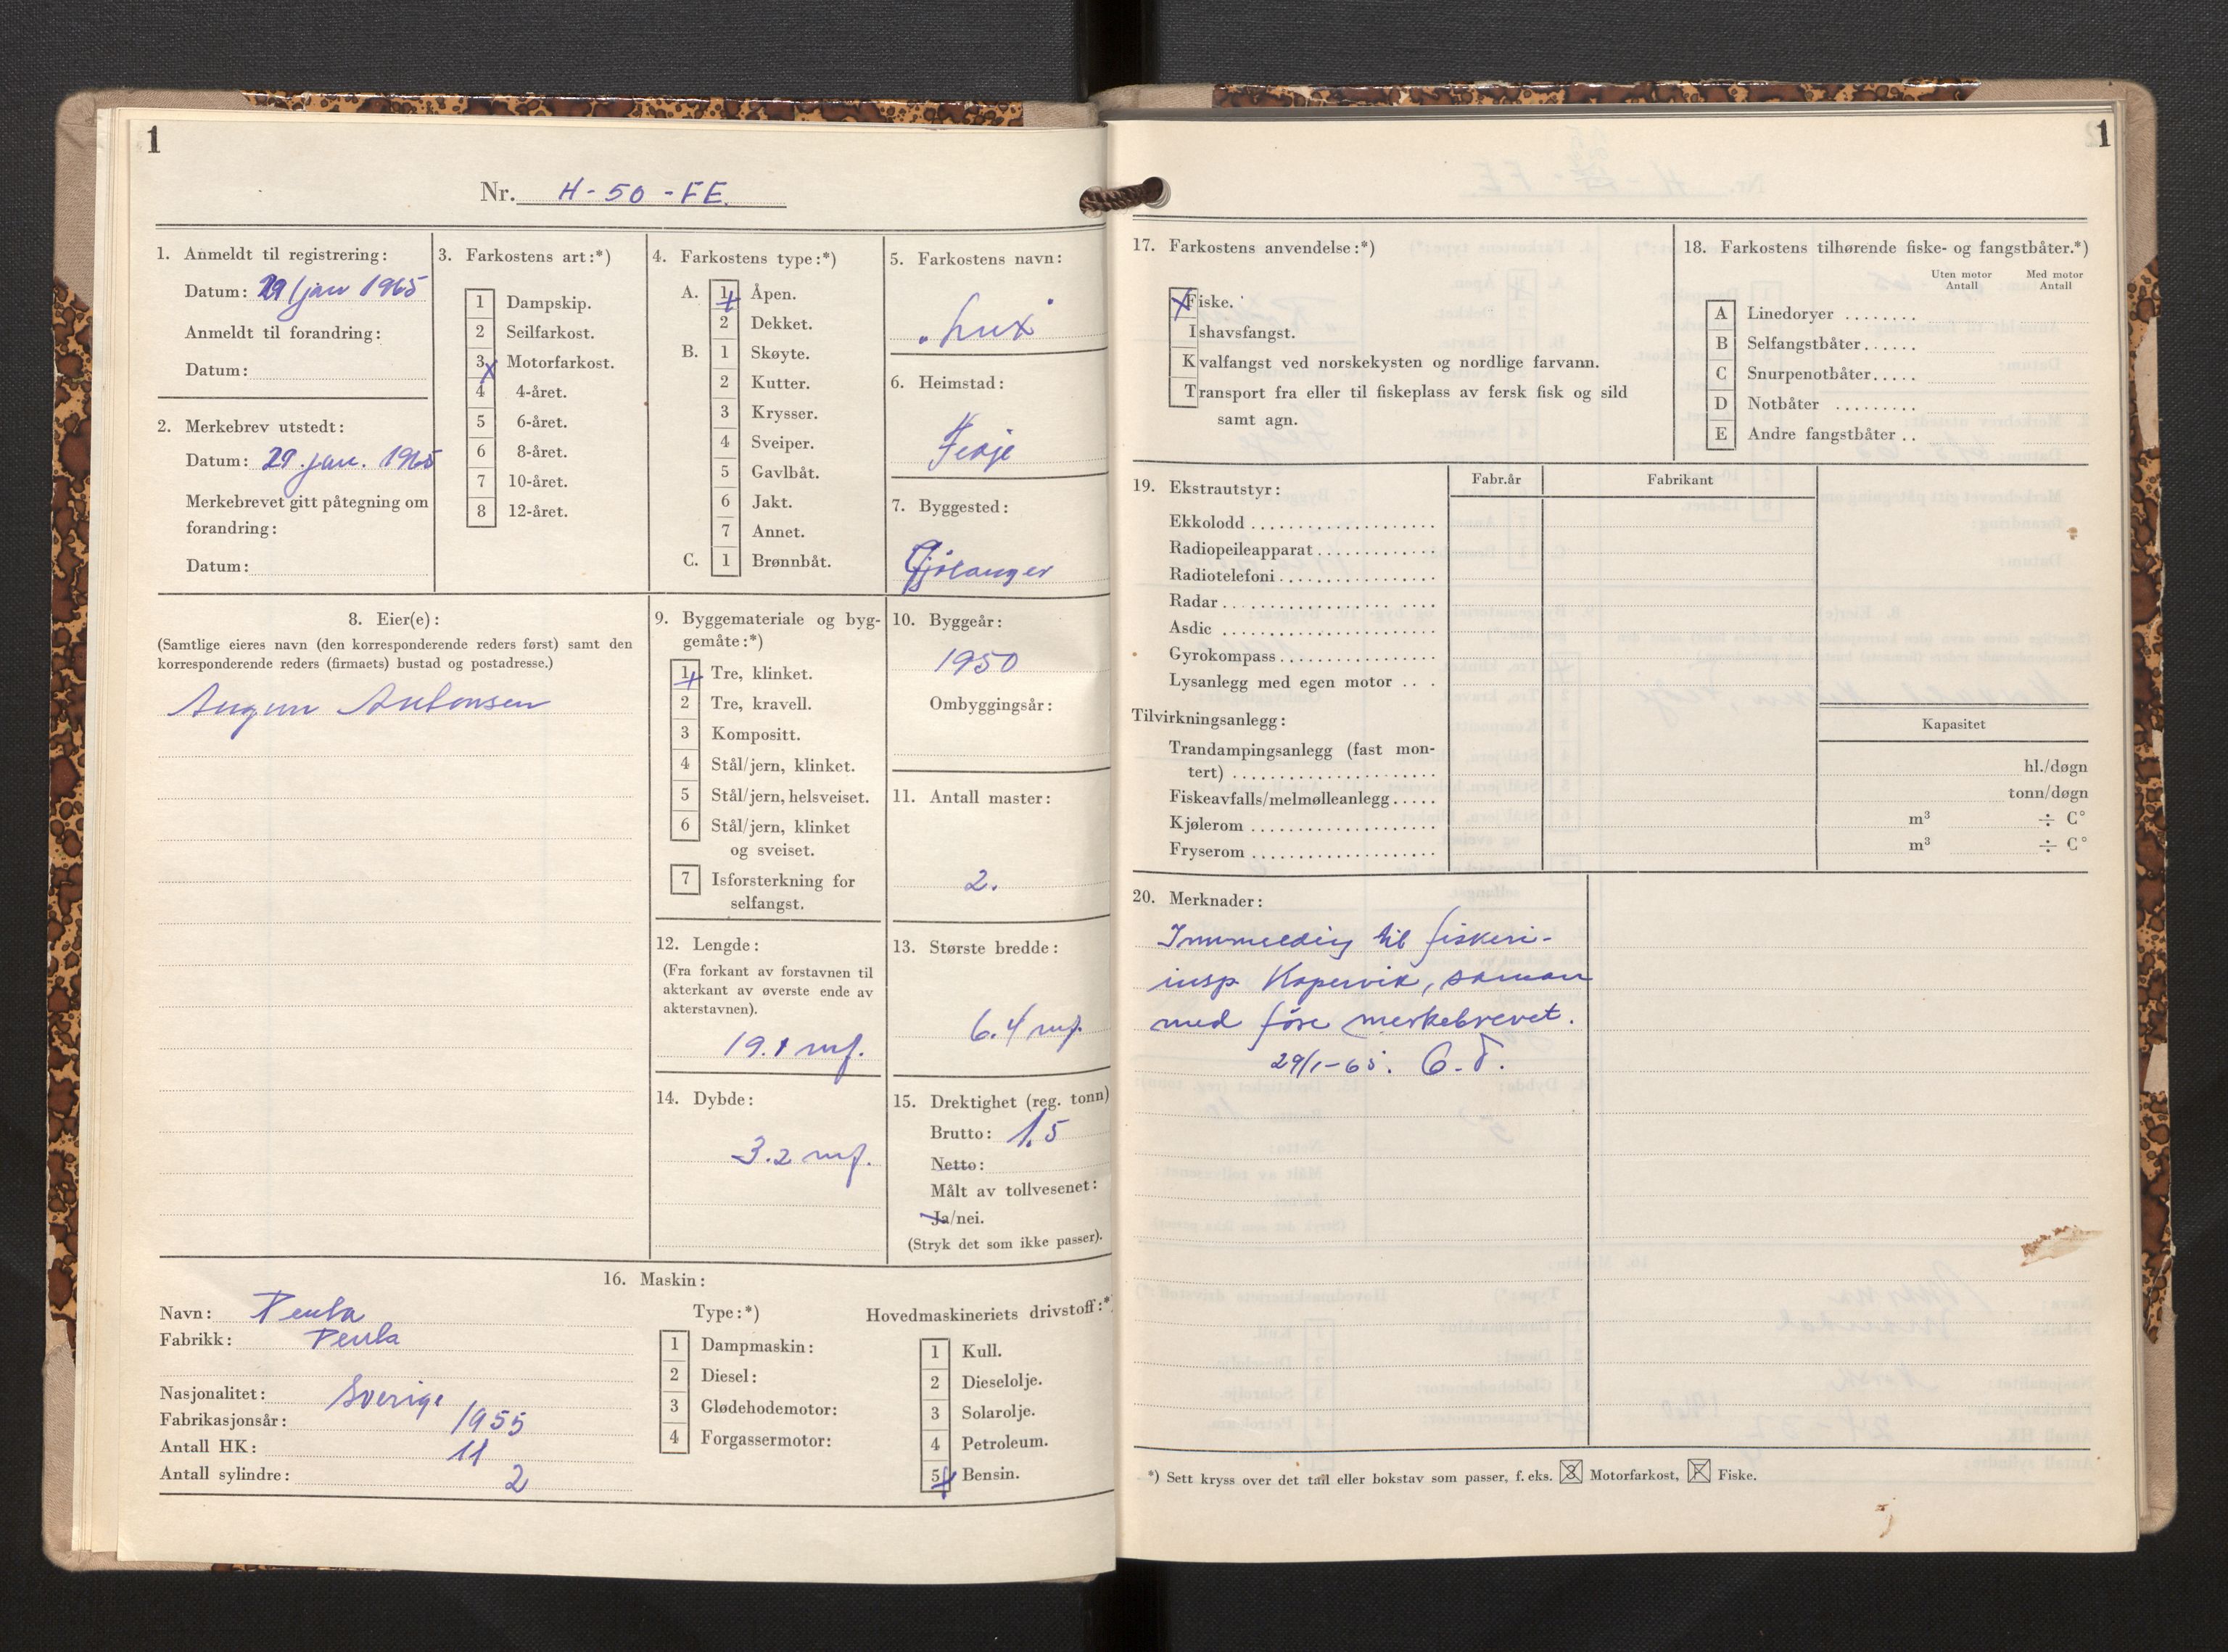 1
Nr. H-50-FE.
1. Anmeldt til registrering:
Datum: 29/jan 1965
Anmeldt til forandring:
Datum:
2. Merkebrev utstedt:
Datum: 29. jan. 1965
Merkebrevet gitt påtegning om
forandring:
Datum:
3. Farkostens art:*)
1 Dampskip.
2 Seilfarkost.
3 Motorfarkost.
4 4-året.
5 6-året.
6 8-året.
7 10-året.
8 12-året.
4. Farkostens type:*)
A. 1 Åpen.
2 Dekket.
B. 1 Skøyte.
2 Kutter.
3 Krysser.
4 Sveiper.
5 Gavlbåt.
6 Jakt.
7 Annet.
C. 1 Brønnbåt.
5. Farkostens navn:
"Lux"
6. Heimstad:
Fedje
7. Byggested:
Gjølanger
8. Eier(e):
(Samtlige eieres navn (den korresponderende reders først) samt den
korresponderende reders (firmaets) bustad og postadresse.)
Antonsen
9. Byggemateriale og byg-
gemåte:*)
1 Tre, klinket.
2 Tre, kravell.
3 Kompositt.
4 Stål/jern, klinket.
5 Stål/jern, helsveiset.
6 Stål/jern, klinket
og sveiset.
7 Isforsterkning for
selfangst.
10. Byggeår:
1950
Ombyggingsår:
11. Antall master:
2.
12. Lengde:
(Fra forkant av forstavnen til
akterkant av øverste ende av
akterstavnen).
19.1 mf.
13. Største bredde:
6.4 mf.
14. Dybde:
3.2 mf.
15. Drektighet (reg. tonn)
Brutto: 1.5
Netto:
Målt av tollvesenet:
Ja/nei.
(Stryk det som ikke passer).
16. Maskin:
Navn: Penta
Fabrikk: Penta
Nasjonalitet: Sverige
Fabrikasjonsår: 1955
Antall HK: 11
Antall sylindre: 2
Type:*)
1 Dampmaskin:
2 Diesel:
3 Glødehodemotor:
4 Forgassermotor:
Hovedmaskineriets drivstoff:*)
1 Kull.
2 Dieselolje.
3 Solarolje.
4 Petroleum.
5 Bensin.
1
17. Farkostens anvendelse:*)
Fiske.
Ishavsfangst.
Kvalfangst ved norskekysten og nordlige farvann.
Transport fra eller til fiskeplass av fersk fisk og sild
samt agn.
18. Farkostens tilhørende fiske- og fangstbåter.*)
Uten motor Med motor
Antall Antall
A Linedoryer ........
B Selfangstbåter......
C Snurpenotbåter.....
D Notbåter .........
E Andre fangstbåter ..
19. Ekstrautstyr:
Fabr.år
Fabrikant
Ekkolodd ...................
Radiopeileapparat............
Radiotelefoni................
Radar ......................
Asdic ......................
Gyrokompass................
Lysanlegg med egen motor ...
Tilvirkningsanlegg:
Kapasitet
Trandampingsanlegg (fast mon-
tert) ..................... hl./døgn
Fiskeavfalls/melmølleanlegg..... tonn/døgn
Kjølerom ................... m³ ÷ C°
Fryserom ................... m³ ÷ C°
20. Merknader:
Innmelding til fiskeri-
insp. Kopervik, saman
med före merkebrevet.
29/1-65.
*) Sett kryss over det tall eller bokstav som passer, f. eks. 3 Motorfarkost, F Fiske.